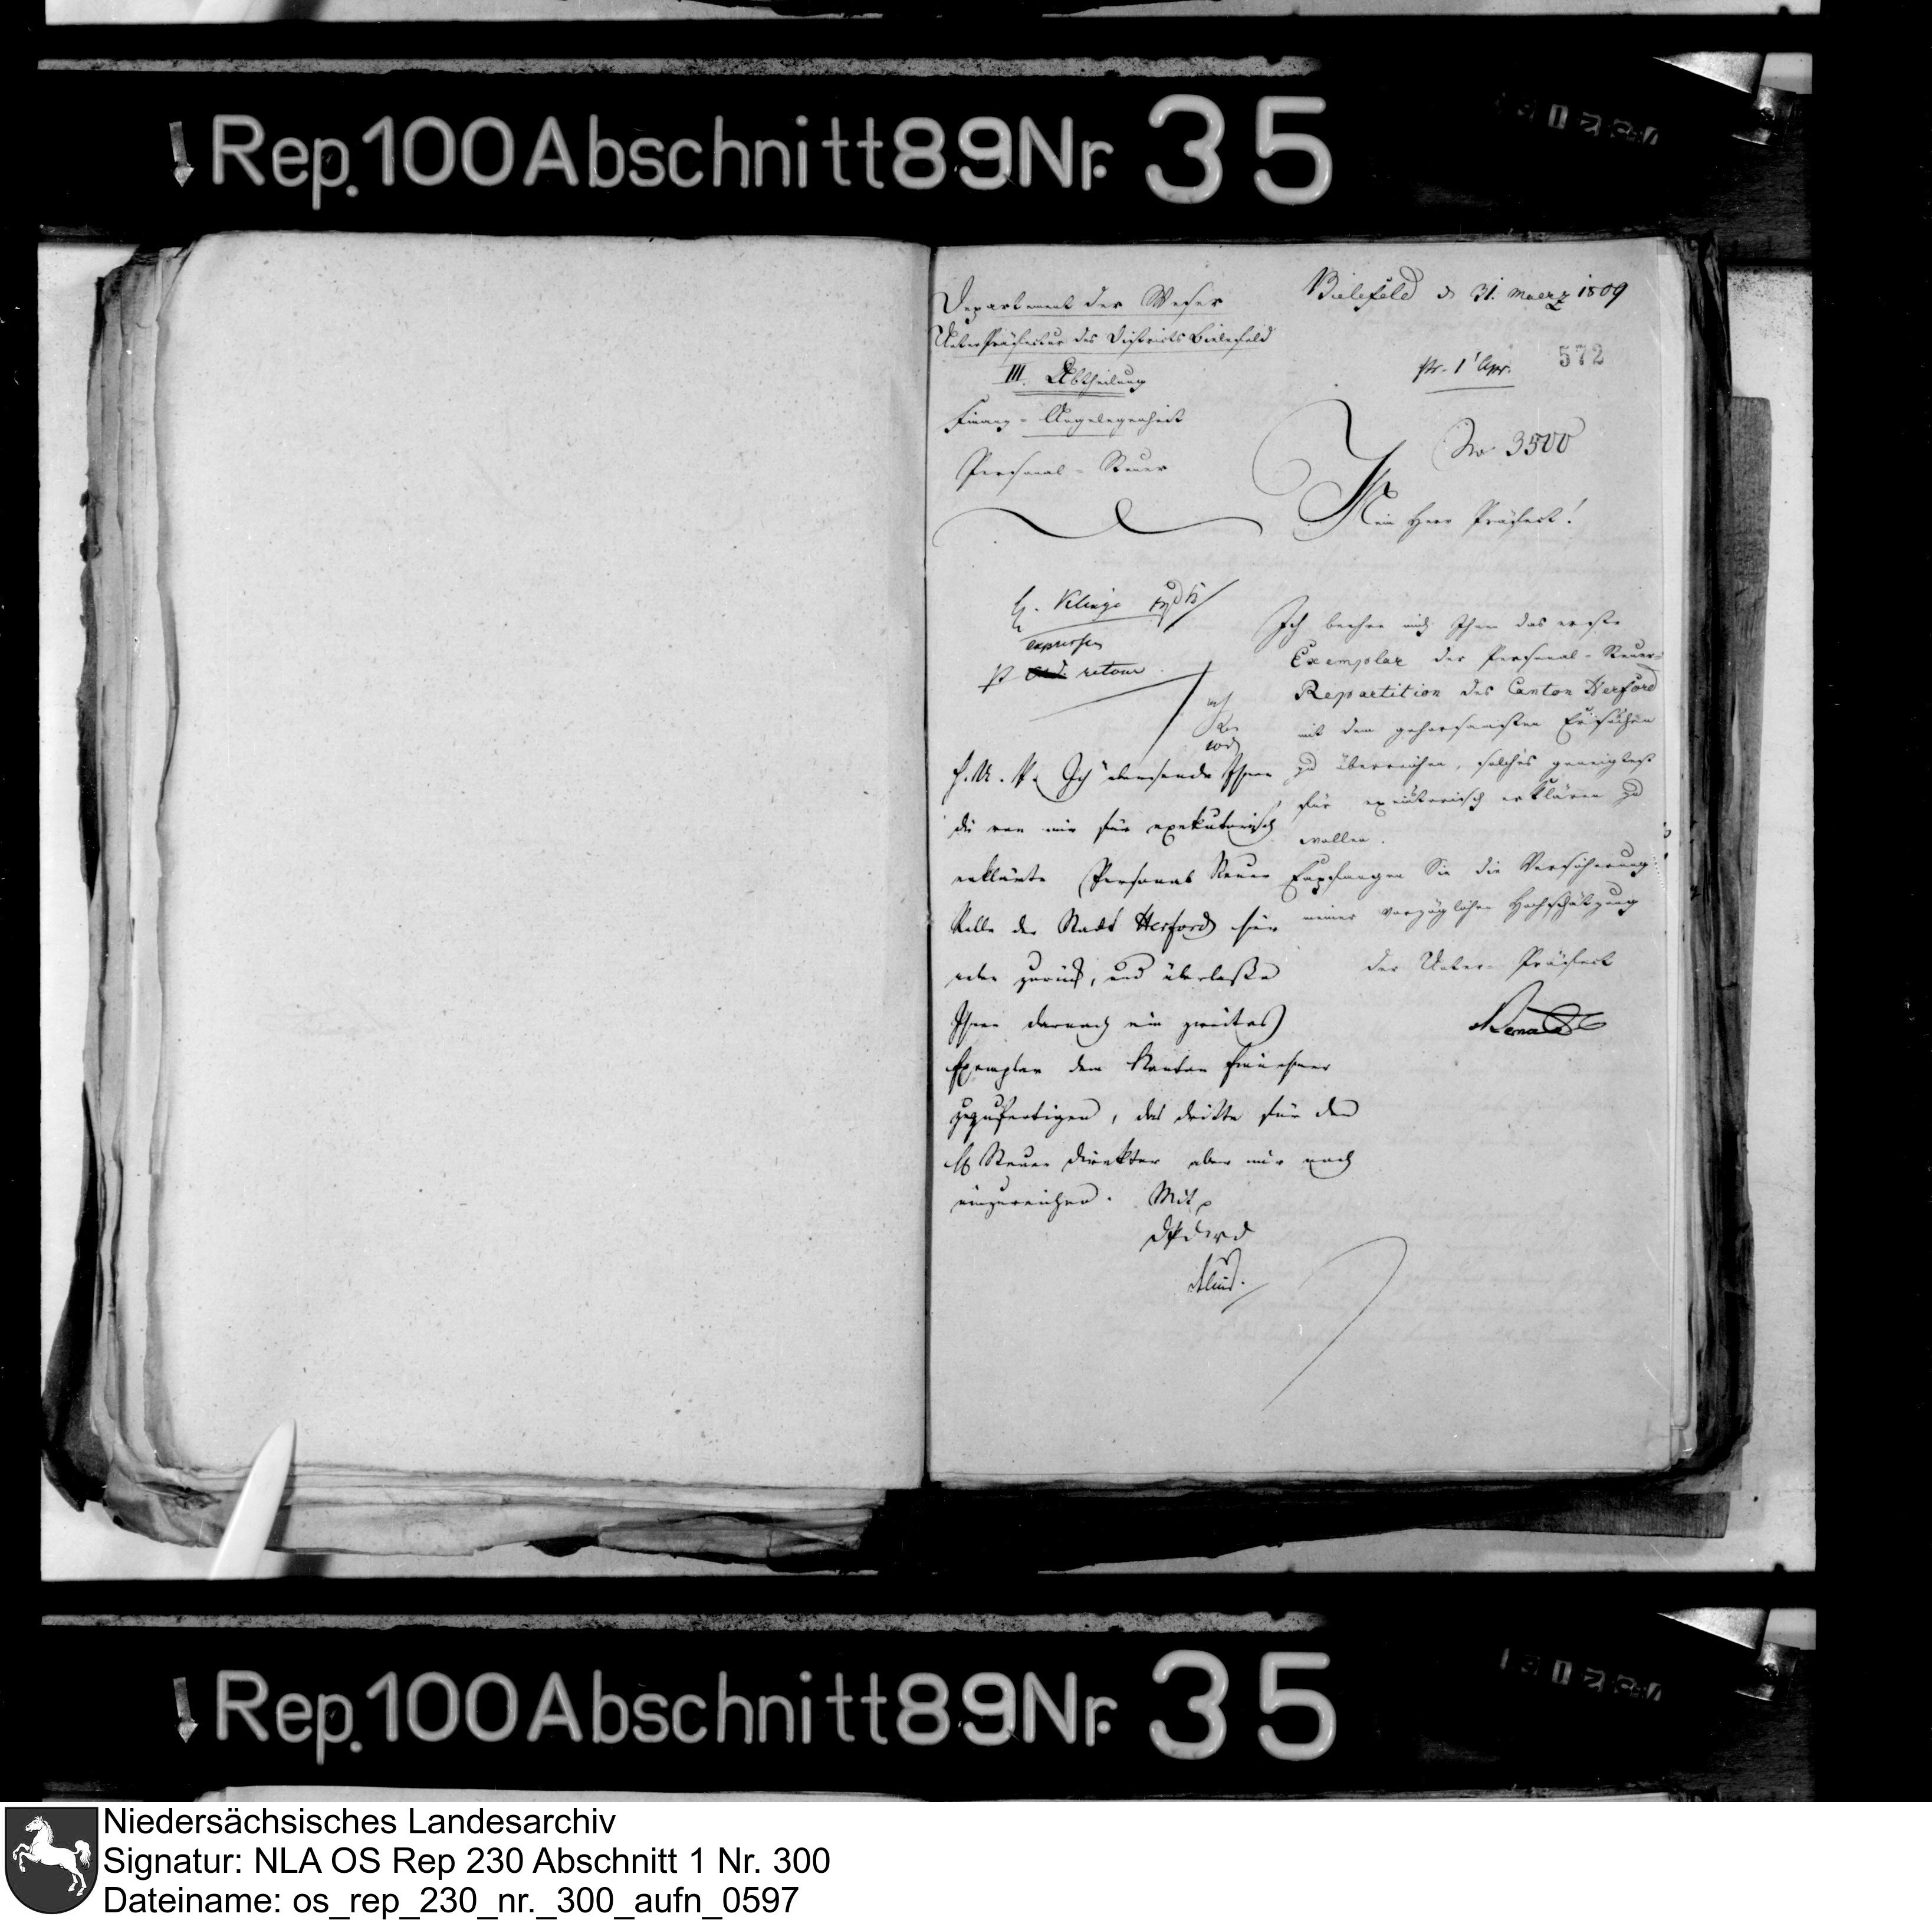 Rep. 100 Abschnitt 89 Nr. 35
Departement der Weser
Unter Präfectur des Districts Bielefeld
III. Abtheilung
Finanz-Angelegenheit
Personal-Steuer
Bielefeld d 31. Maerz 1809
pr. 1' Apr.
572
No 3500
Mein Herr Präfect!
Ich beehre mich Ihnen das erste
Exemplar der Personal-Steuer-
Repartition des Canton Herford
mit dem gehorsamsten Ersuchen
zu überreichen, solches geneigtest
für executorisch erklären zu
wollen.
Empfangen Sie die Versicherung
meiner vorzüglichen Hochschätzung
der Unter-Präfect
expressen
retour
Ich übersende Ihnen
die von mir für exekutorisch
erklärte Personal Steuer
Rolle der Stadt Herford hier
neben zurück, und überlaße
Ihnen darnach ein zweites
Exemplar dem Kanton Einnehmer
zuzufertigen, das dritte für den
H Steuer Direktor aber mir noch
einzureichen. Mit
Rep. 100 Abschnitt 89 Nr. 35
Niedersächsisches Landesarchiv
Signatur: NLA OS Rep 230 Abschnitt 1 Nr. 300
Dateiname: os_rep_230_nr._300_aufn_0597